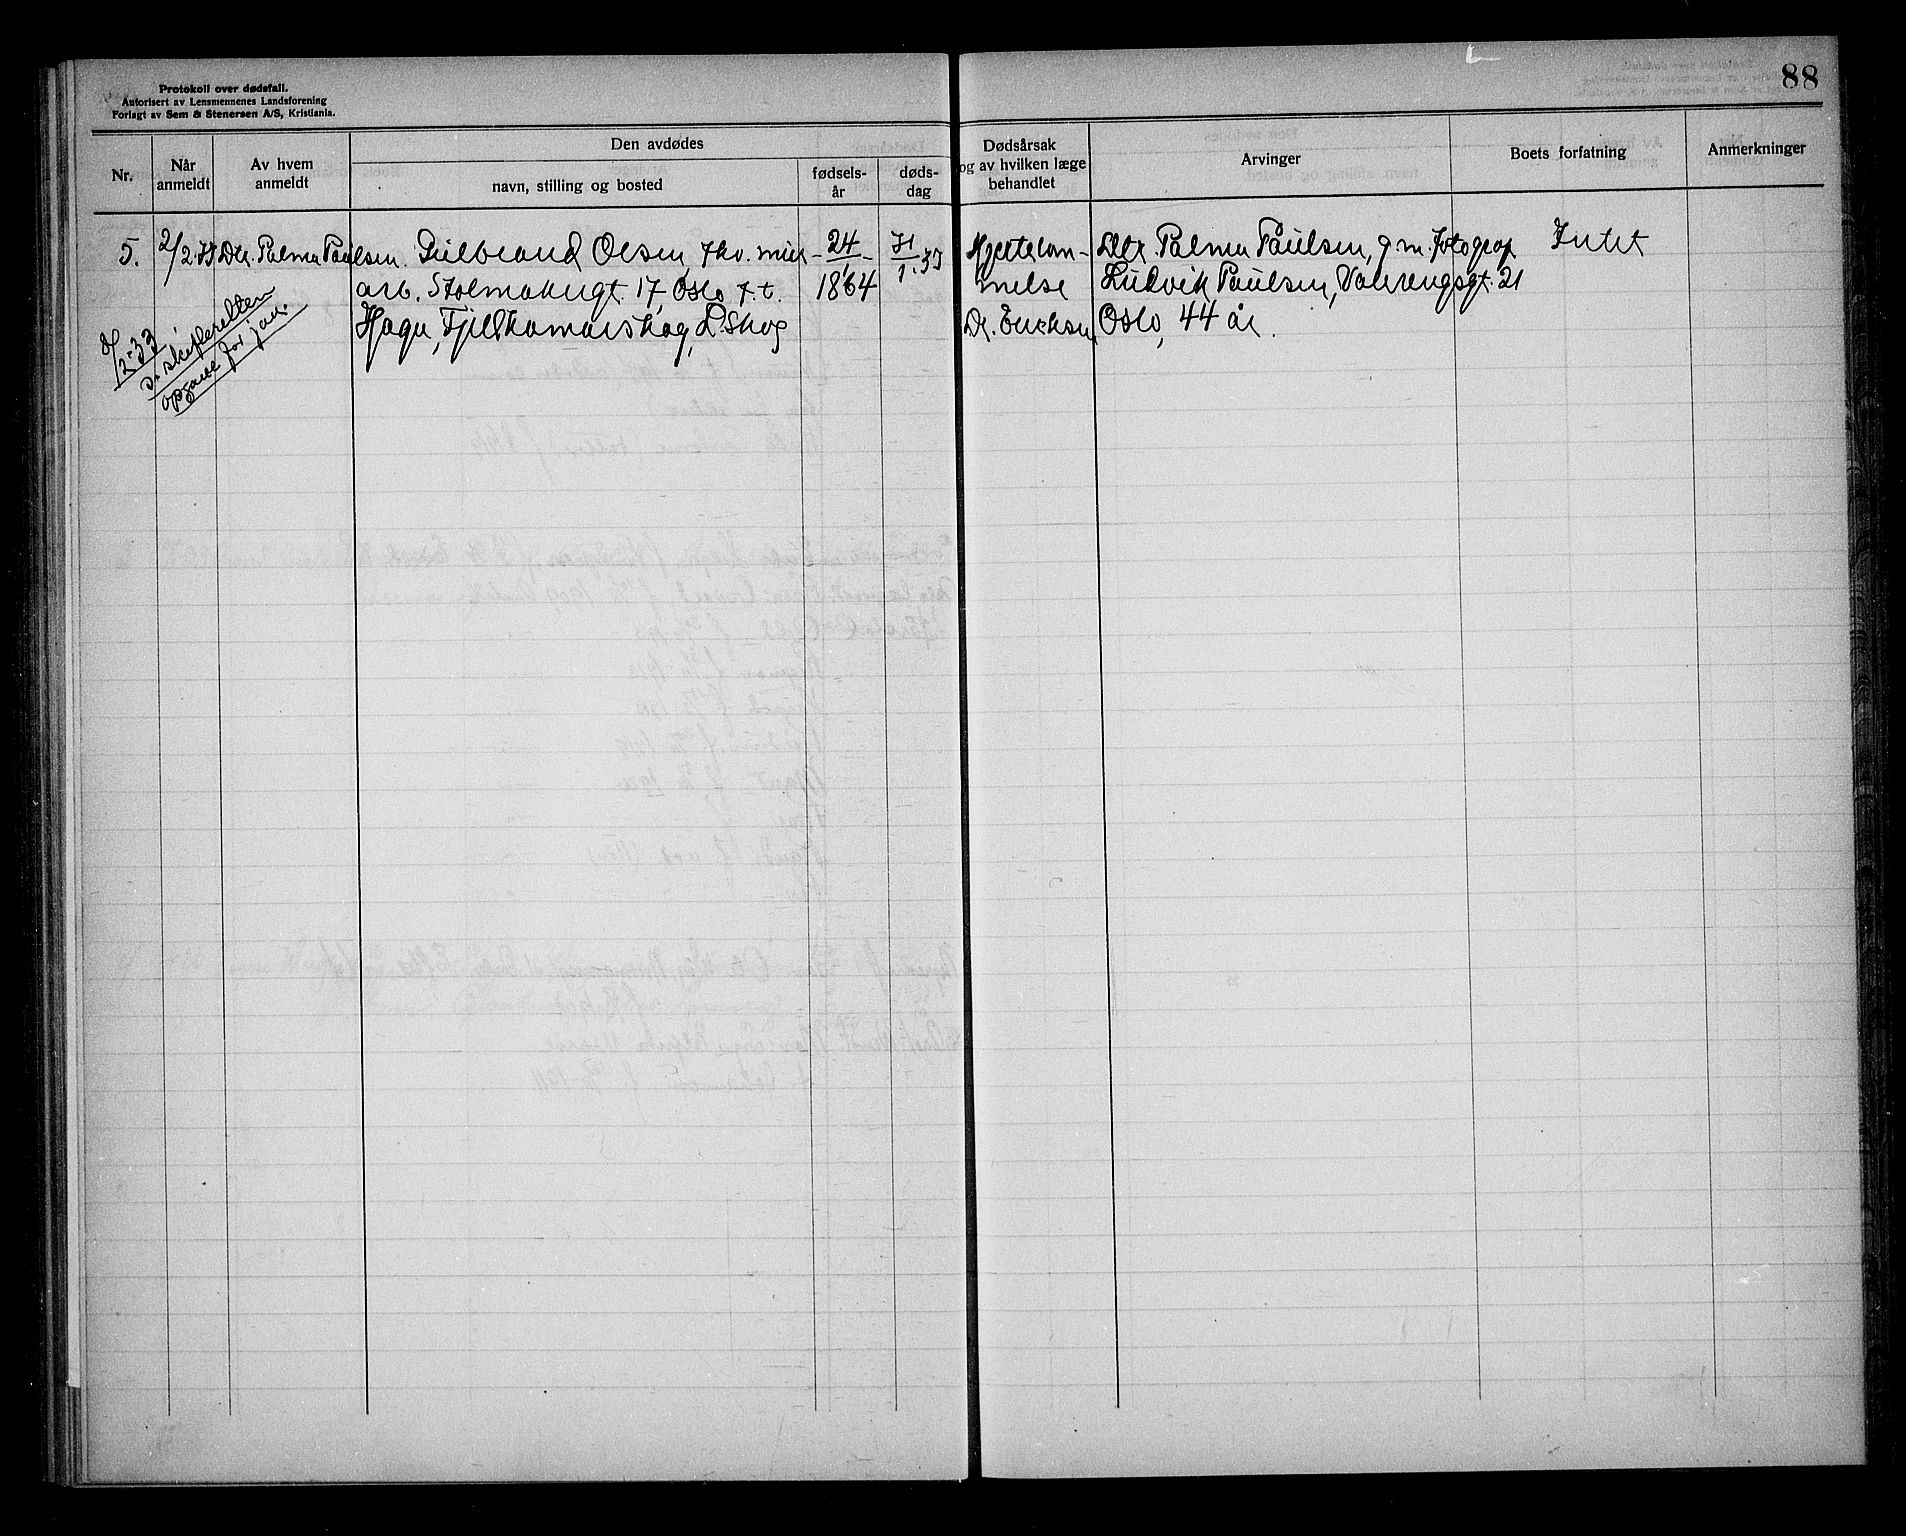 88
Protokoll over dødsfall.
Autorisert av Lensmennenes Landsforening
Forlagt av Sem & Stenersen A/S, Kristiania.
Nr.
Når anmeldt
Av hvem anmeldt
Den avdødes
navn, stilling og bosted
fødsels-år
døds-dag
Dødsårsak og av hvilken læge behandlet
Arvinger
Boets forfatning
Anmerkninger
5. 2/2.33 Dtr. Palma Paulsen. Gulbrand Olsen, fhv. mur- 24/1 31/1.33 Hjertelam- Dtr. Palma Paulsen, g.m. fotograf Intet
arb. Stolmakergt. 17, Oslo f.t. 1864 melse Ludvik Paulsen, Vålerengsgt. 21
Haga, Fjellhamarskog, L.skog Dr. Erichsen Oslo, 44 år.
8/2-33
skifteretten
opgave for jan.